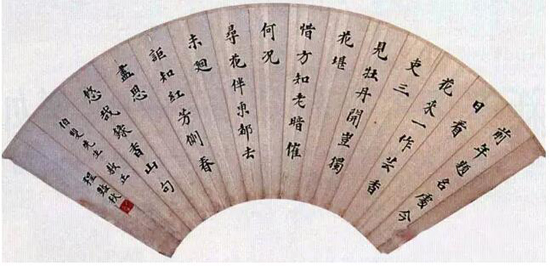 前年題名處今
日看
花來一作芸香
吏三
見牡丹開豈獨
花堪
惜方知老暗催
何況
尋花伴東都去
未迴
詎知紅芳側春
盡思
悠哉錄香山句
先生教正
程豔秋